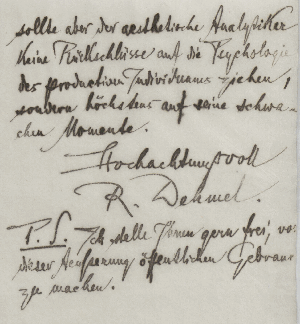 sollte aber der aesthetische Analytiker
keine Rückschlüsse auf die Psychologie
des productiven Individuums ziehen,
sondern höchstens auf seine schwa-
chen Momente.
Hochachtungsvoll
R. Dehmel.
P. S. Ich stelle Ihnen gern frei, von
dieser Aeusserung öffentlichen Gebrauch
zu machen.